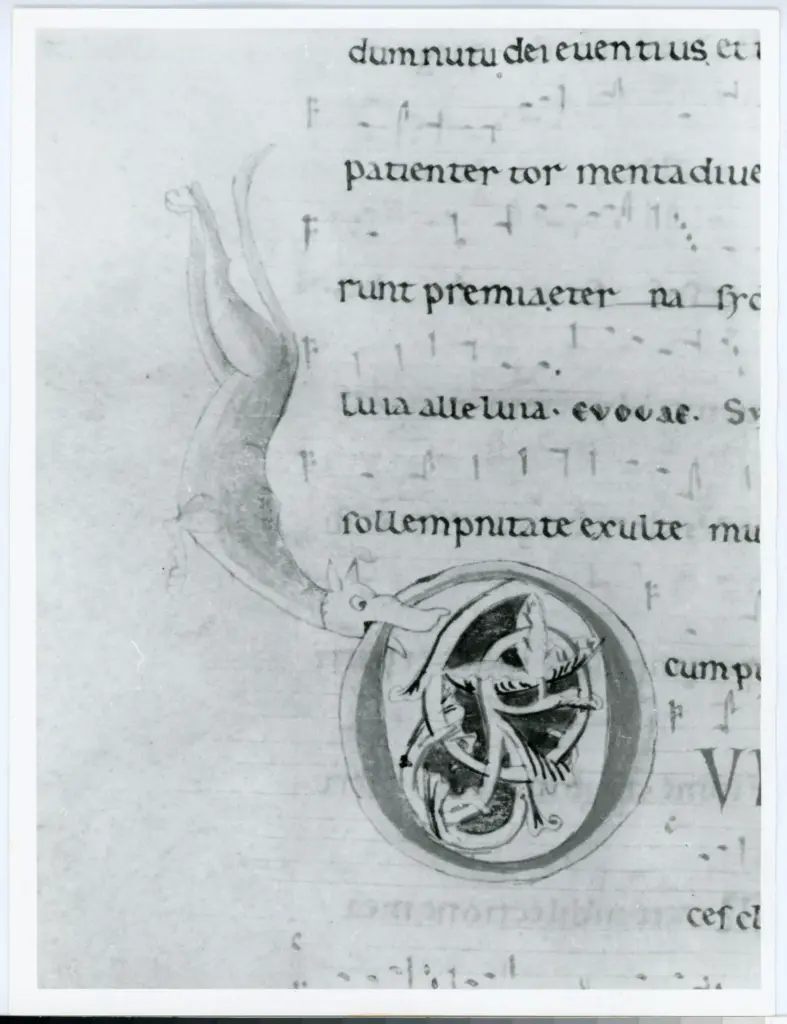 dum nutu dei euentius, et
patienter tormenta diue
runt premia eter na syd
luia alleluia. evovae. Sy
sollempnitate exulte mu
O
cum pi
VI
cesc